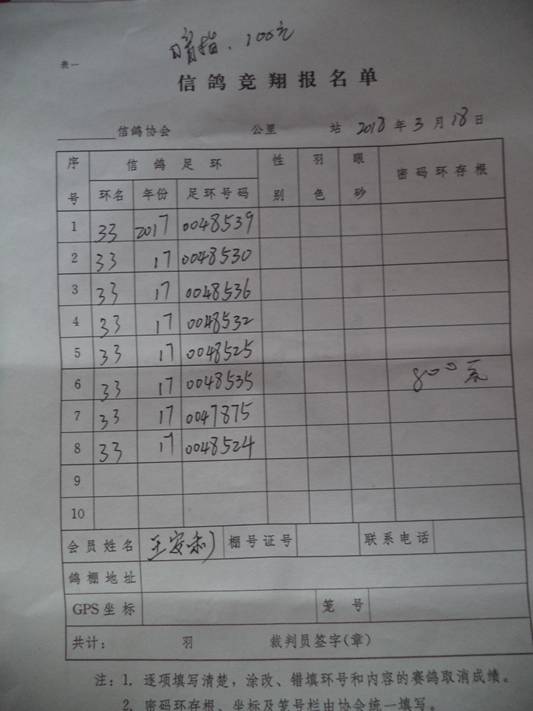 100元
表一
信鸽竞翔报名单
信鸽协会 公里 站 2018年3月18日
序号 信鸽足环 性别 羽色 眼砂 密码环存根
环名 年份 足环号码
1 33 2017 0048539
2 33 17 0048530
3 33 17 0048536
4 33 17 0048532
5 33 17 0048525
6 33 17 0048535 800元
7 33 17 0047875
8 33 17 0048524
9
10
会员姓名 王安 棚号证号 联系电话
鸽棚地址
GPS坐标 笼号
共计： 羽 裁判员签字(章)
注：1. 逐项填写清楚，涂改、错填环号和内容的赛鸽取消成绩。
2. 密码环存根、坐标及笼号栏由协会统一填写。